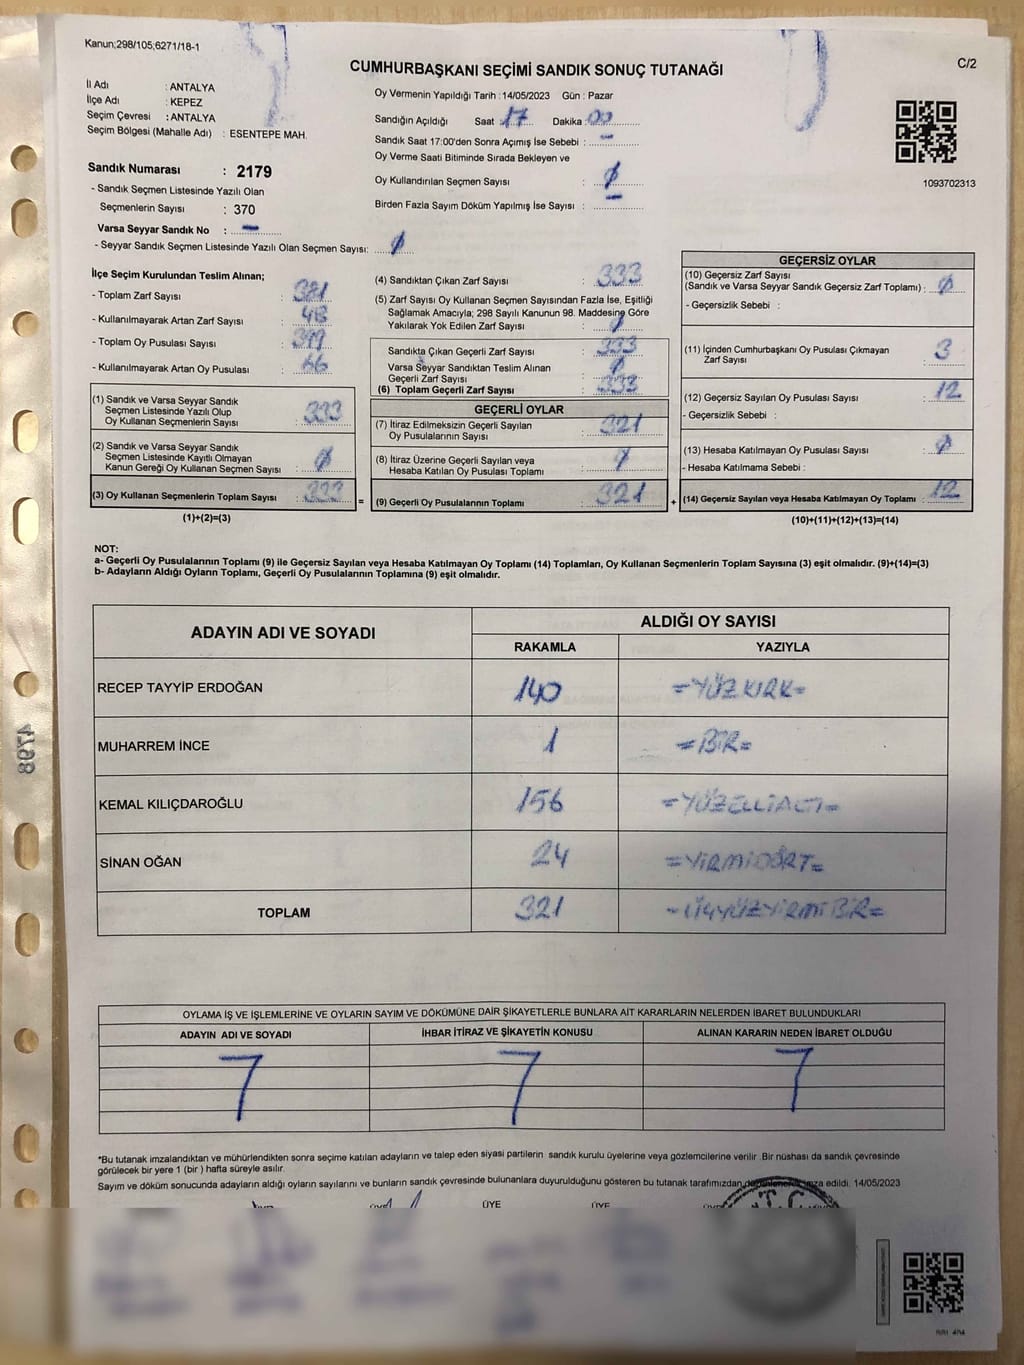 Kanun;298/105;6271/18-1
C/2
CUMHURBAŞKANI SEÇİMİ SANDIK SONUÇ TUTANAĞI
İl Adı : ANTALYA
İlçe Adı : KEPEZ
Seçim Çevresi : ANTALYA
Seçim Bölgesi (Mahalle Adı) : ESENTEPE MAH.
Sandık Numarası : 2179
- Sandık Seçmen Listesinde Yazılı Olan
Seçmenlerin Sayısı : 370
Varsa Seyyar Sandık No : -
- Seyyar Sandık Seçmen Listesinde Yazılı Olan Seçmen Sayısı: Ø
Oy Vermenin Yapıldığı Tarih : 14/05/2023 Gün : Pazar
Sandığın Açıldığı Saat : 17 Dakika : 00
Sandık Saat 17:00'den Sonra Açımış İse Sebebi : -
Oy Verme Saati Bitiminde Sırada Bekleyen ve
Oy Kullandırılan Seçmen Sayısı : Ø
Birden Fazla Sayım Döküm Yapılmış İse Sayısı : -
1093702313
İlçe Seçim Kurulundan Teslim Alınan;
- Toplam Zarf Sayısı : 381
- Kullanılmayarak Artan Zarf Sayısı : 48
- Toplam Oy Pusulası Sayısı : 399
- Kullanılmayarak Artan Oy Pusulası : 66
(1) Sandık ve Varsa Seyyar Sandık
Seçmen Listesinde Yazılı Olup
Oy Kullanan Seçmenlerin Sayısı : 333
(2) Sandık ve Varsa Seyyar Sandık
Seçmen Listesinde Kayıtlı Olmayan
Kanun Gereği Oy Kullanan Seçmen Sayısı : Ø
(3) Oy Kullanan Seçmenlerin Toplam Sayısı : 333
(1)+(2)=(3)
(4) Sandıktan Çıkan Zarf Sayısı : 333
(5) Zarf Sayısı Oy Kullanan Seçmen Sayısından Fazla İse, Eşitliği
Sağlamak Amacıyla; 298 Sayılı Kanunun 98. Maddesine Göre
Yakılarak Yok Edilen Zarf Sayısı : Ø
Sandıkta Çıkan Geçerli Zarf Sayısı : 333
Varsa Seyyar Sandıktan Teslim Alınan
Geçerli Zarf Sayısı : Ø
(6) Toplam Geçerli Zarf Sayısı : 333
GEÇERLİ OYLAR
(7) İtiraz Edilmeksizin Geçerli Sayılan
Oy Pusulalarının Sayısı : 321
(8) İtiraz Üzerine Geçerli Sayılan veya
Hesaba Katılan Oy Pusulası Toplamı : Ø
= (9) Geçerli Oy Pusulalarının Toplamı : 321
GEÇERSİZ OYLAR
(10) Geçersiz Zarf Sayısı
(Sandık ve Varsa Seyyar Sandık Geçersiz Zarf Toplamı) : Ø
- Geçersizlik Sebebi :
(11) İçinden Cumhurbaşkanı Oy Pusulası Çıkmayan
Zarf Sayısı : 3
(12) Geçersiz Sayılan Oy Pusulası Sayısı : 12
- Geçersizlik Sebebi :
(13) Hesaba Katılmayan Oy Pusulası Sayısı : Ø
- Hesaba Katılmama Sebebi :
+ (14) Geçersiz Sayılan veya Hesaba Katılmayan Oy Toplamı : 12
(10)+(11)+(12)+(13)=(14)
NOT:
a- Geçerli Oy Pusulalarının Toplamı (9) ile Geçersiz Sayılan veya Hesaba Katılmayan Oy Toplamı (14) Toplamları, Oy Kullanan Seçmenlerin Toplam Sayısına (3) eşit olmalıdır. (9)+(14)=(3)
b- Adayların Aldığı Oyların Toplamı, Geçerli Oy Pusulalarının Toplamına (9) eşit olmalıdır.
ADAYIN ADI VE SOYADI
ALDIĞI OY SAYISI
RAKAMLA YAZIYLA
RECEP TAYYİP ERDOĞAN 140 =YÜZKIRK=
MUHARREM İNCE 1 =BİR=
KEMAL KILIÇDAROĞLU 156 =YÜZELLİALTI=
SİNAN OĞAN 24 =YİRMİDÖRT=
TOPLAM 321 =ÜÇYÜZYİRMİBİR=
OYLAMA İŞ VE İŞLEMLERİNE VE OYLARIN SAYIM VE DÖKÜMÜNE DAİR ŞİKAYETLERLE BUNLARA AİT KARARLARIN NELERDEN İBARET BULUNDUKLARI
ADAYIN ADI VE SOYADI İHBAR İTİRAZ VE ŞİKAYETİN KONUSU ALINAN KARARIN NEDEN İBARET OLDUĞU
*Bu tutanak imzalandıktan ve mühürlendikten sonra seçime katılan adayların ve talep eden siyasi partilerin sandık kurulu üyelerine veya gözlemcilerine verilir .Bir nüshası da sandık çevresinde
görülecek bir yere 1 (bir ) hafta süreyle asılır.
Sayım ve döküm sonucunda adayların aldığı oyların sayılarını ve bunların sandık çevresinde bulunanlara duyurulduğunu gösteren bu tutanak tarafımızdan düzenlenerek imza edildi. 14/05/2023
ÜYE ÜYE
4798